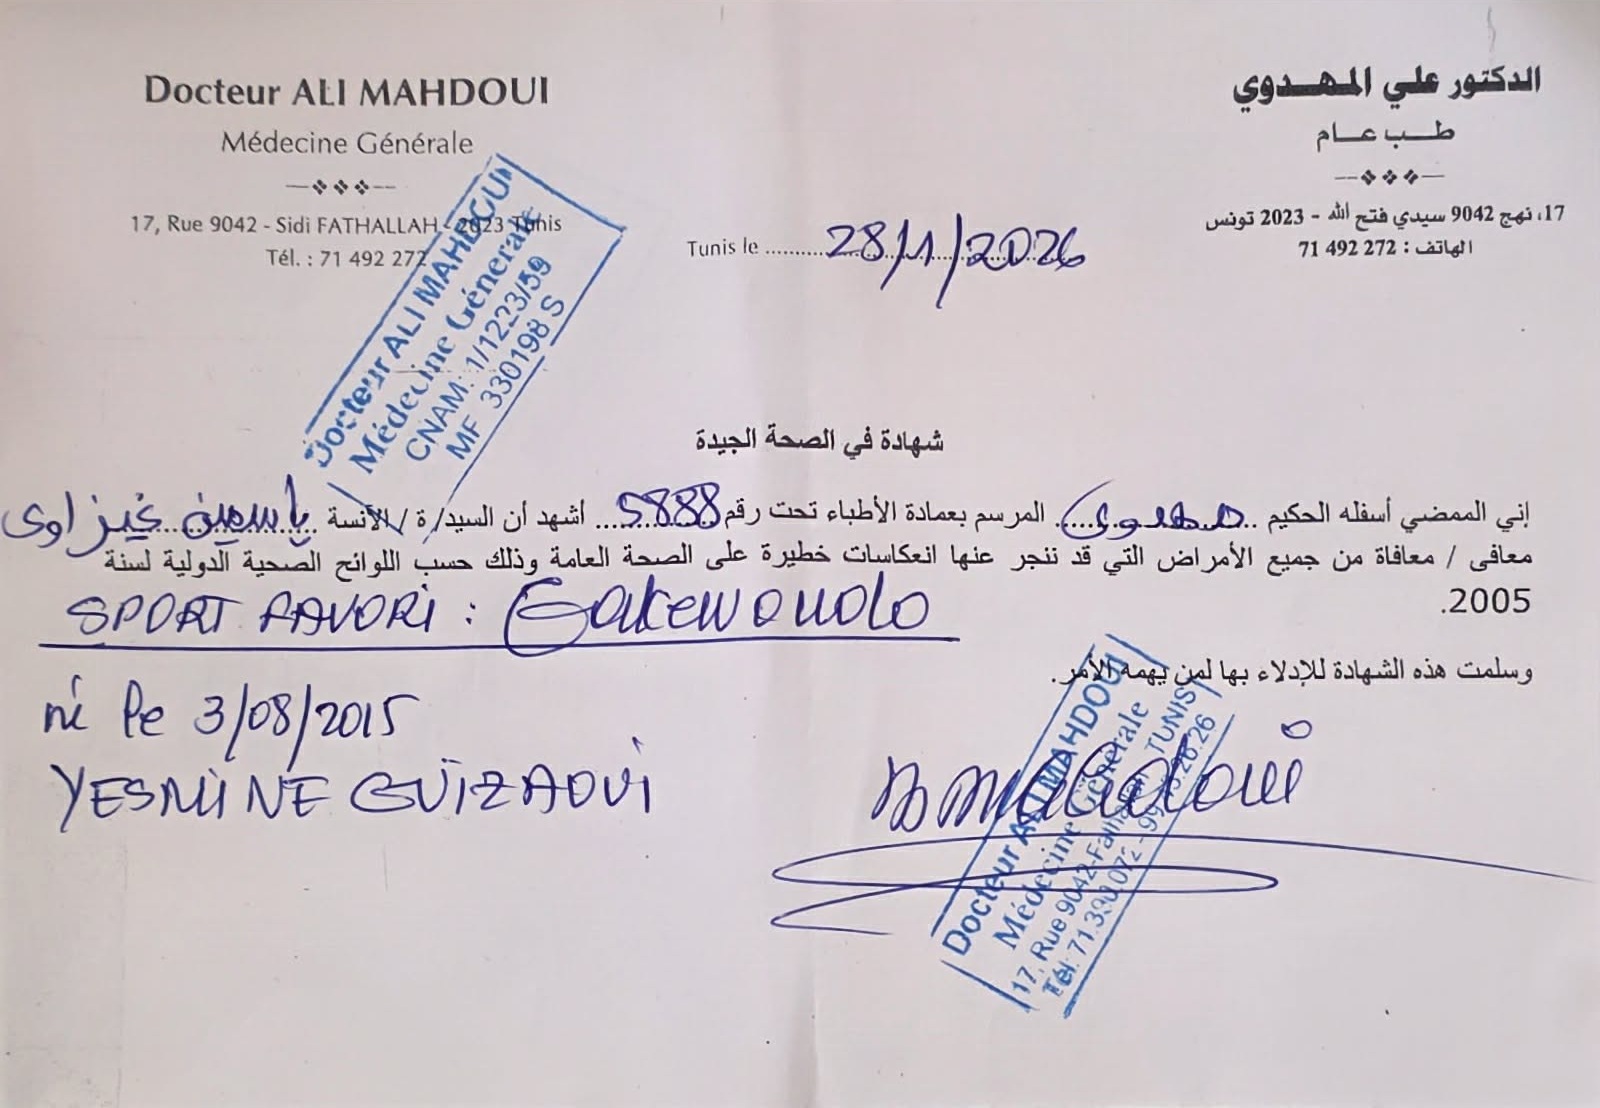 Docteur ALI MAHDOUI
Médecine Générale
17, Rue 9042 - Sidi FATHALLAH - 2023 Tunis
Tél. : 71 492 272
الدكتور علي المهدوي
طب عام
17، نهج 9042 سيدي فتح الله - 2023 تونس
الهاتف : 272 492 71
Tunis le 28/1/2026
Docteur ALI MAHDOUI
Médecine Génerale
CNAM: 1/1223/59
MF 330198 S
شهادة في الصحة الجيدة
إني الممضي أسفله الحكيم مهدوي المرسم بعمادة الأطباء تحت رقم 5888 أشهد أن السيد/ة / الآنسة ياسمين غيزاوي
معافى / معافاة من جميع الأمراض التي قد تنجر عنها انعكاسات خطيرة على الصحة العامة وذلك حسب اللوائح الصحية الدولية لسنة
2005.
SPORT FAVORI :
وسلمت هذه الشهادة للإدلاء بها لمن يهمه الأمر.
né le 3/08/2015
YESMINE GUIZAOUI
Docteur ALI MAHDOUI
Médecine Génerale
17, Rue 9042-Fathallah TUNIS
Tél: 71.390.072 -